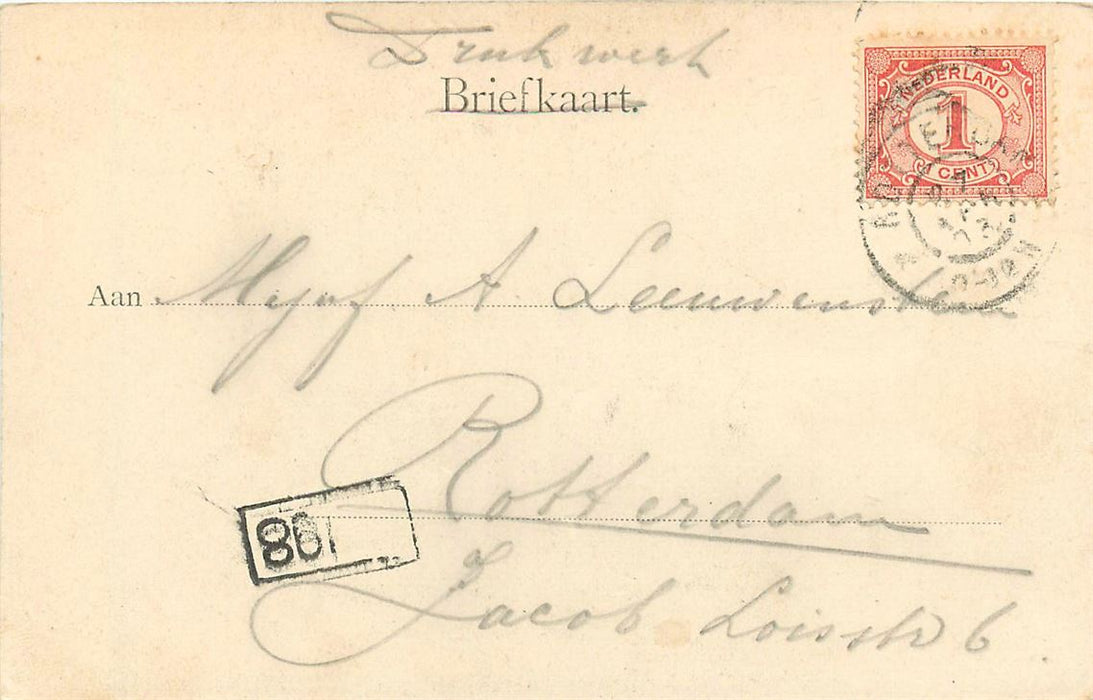 Drukwerk
Briefkaart.
NEDERLAND
1
CENT
Aan Mejuf A. Leeuwenstein
Rotterdam
Jacob Loisstr 6